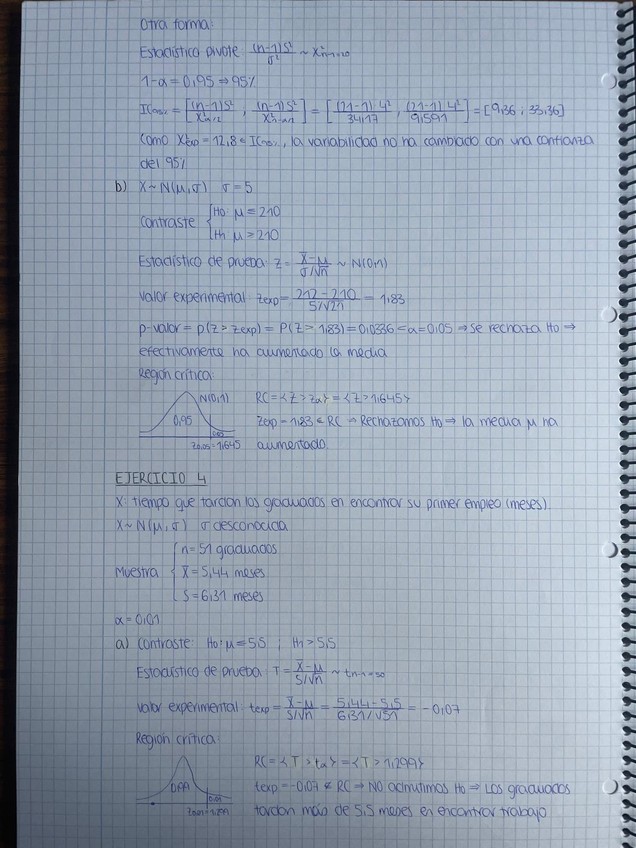 Otra forma:
Estadístico pivote: (n-1)S²/σ² ~ X²n-1=20
1-α = 0,95 ⇒ 95%
IC95% = [(n-1)S²/X²α/2 ; (n-1)S²/X²1-α/2] = [(21-1)·4²/34,17 ; (21-1)·4²/9,591] = [9,36 ; 33,36]
Como X²exp = 12,8 ∈ IC95%, la variabilidad no ha cambiado con una confianza
del 95%
b) X ~ N(μ,σ) σ = 5
Contraste { H0: μ = 210
H1: μ > 210
Estadístico de prueba: Z = (X̄-μ)/(σ/√n) ~ N(0,1)
Valor experimental: Zexp = (212-210)/(5/√21) = 1,83
p-valor = p(Z > Zexp) = P(Z > 1,83) = 0,0336 < α = 0,05 ⇒ Se rechaza H0 ⇒
efectivamente ha aumentado la media
Región crítica:
N(0,1) RC = {Z > Zα} = {Z > 1,645}
0,95 0,05 Zexp = 1,83 ∈ RC ⇒ Rechazamos H0 ⇒ la media μ ha
Z0,05 = 1,645 aumentado.
EJERCICIO 4
X: tiempo que tardan los graduados en encontrar su primer empleo (meses).
X ~ N(μ,σ) σ desconocida
Muestra { n = 51 graduados
X̄ = 5,44 meses
S = 6,31 meses
α = 0,01
a) Contraste: H0: μ = 5,5 ; H1 > 5,5
Estadístico de prueba: T = (X̄-μ)/(S/√n) ~ tn-1=50
Valor experimental: texp = (X̄-μ)/(S/√n) = (5,44-5,5)/(6,31/√51) = -0,07
Región crítica
RC = {T > tα} = {T > 1,299}
0,99 0,01 texp = -0,07 ∉ RC ⇒ NO admitimos H0 ⇒ Los graduados
tardan más de 5,5 meses en encontrar trabajo